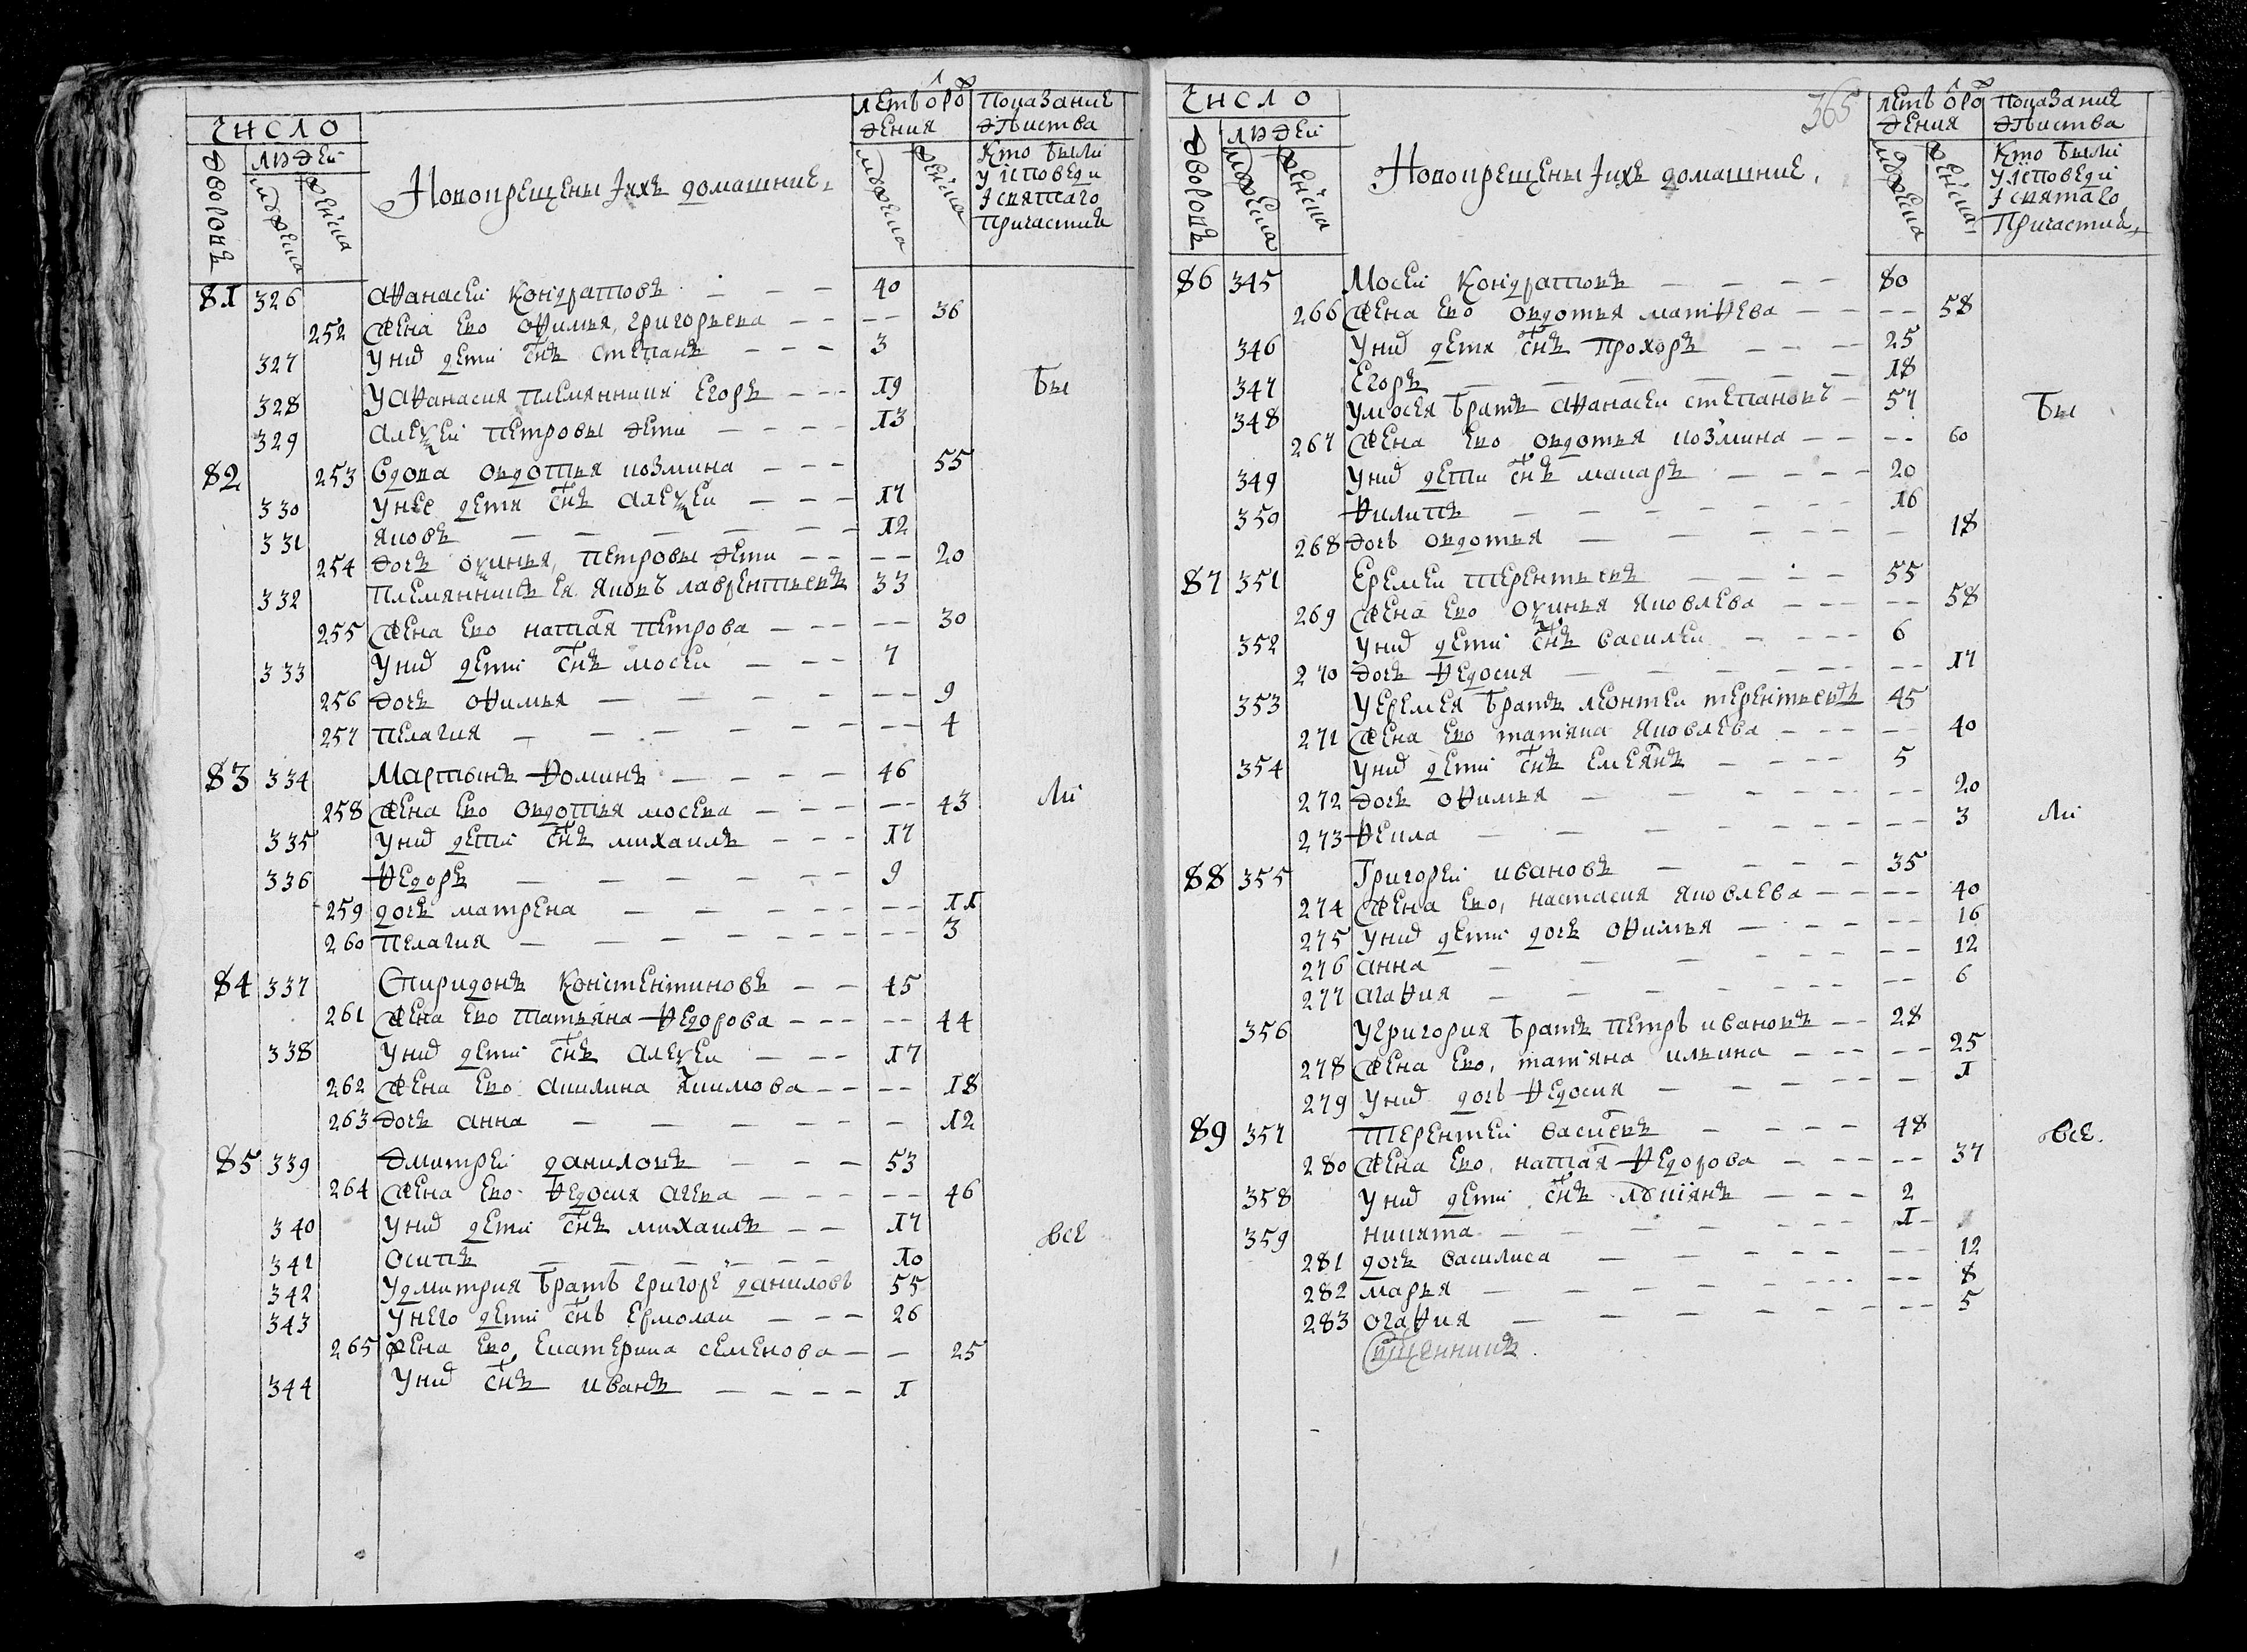 число
дворовъ
людей
мужеска
женска
Новокрещены Їихъ домашние
летъ ѿ рож
дения
мужеска
женска
показание
действа
Кто были
у исповеди
ї святаго
причастия
81 326 Аѳанасей Кондратовъ 40
252 жена ево Оѳимья Григорьева 36
327 у нихъ дети снъ Степанъ 3
328 у Аѳанасия племянники Егоръ 19
329 Алеѯей Петровы дети 13
82 253 вдова Овдотья Козмина 55
330 у нее дети снъ Алеѯей 17
331 Яковъ 12
254 дочь Оѯинья Петровы дети 20
332 племянникъ ея Яковъ Лаврентьевъ 33
255 жена ево Настая Петрова 30
333 у нихъ дети снъ Мосеи 7
256 дочь Оѳимья 9
257 Пелагия 4
83 334 Мартынъ Ѳоминъ 46
258 жена ево Овдотья Мосева 43
335 у нихъ дети снъ Михаилъ 17
336 Ѳедоръ 9
259 дочь Матрена 11
260 Пелагия 3
84 337 Спиридонъ Констентиновъ 45
261 жена ево Татьяна Ѳедорова 44
338 у нихъ дети снъ Алеѯеи 17
262 жена ево Акилина Якимова 18
263 дочь Анна 12
85 339 Дмитрей Даниловъ 53
264 жена ево Ѳедосия Агева 46
340 у нихъ дети снъ Михаилъ 17
341 Осипъ 10
342 у Дмитрия братъ Григоре Даниловъ 55
343 у него дети снъ Ермолаи 26
265 жена ево Екатерина Семенова 25
344 у нихъ снъ Иванъ 1
Бы
ли
все
365
число
дворовъ
людей
мужеска
женска
Новокрещены Їихъ домашние
летъ ѿ рож
дения
мужеска
женска
показание
действа
Кто были
у исповеди
ї святаго
причастия
86 345 Мосей Кондратовъ 80
266 жена ево Овдотья Матѳева 58
346 у нихъ дети снъ Прохоръ 25
347 Егоръ 18
348 у Мосея братъ Аѳанасеи Степановъ 57
267 жена ево Овдотья Козмина 60
349 у нихъ дети снъ Макаръ 20
350 Ѳилипъ 16
268 дочь Овдотья 18
87 351 Еремеи Терентьевъ 55
269 жена ево Оѯинья Яковлева 58
352 у нихъ дети снъ Василеи 6
270 дочь Ѳедосия 17
353 у Еремея братъ Леонтеи Терентьевъ 45
271 жена ево Татьяна Яковлева 40
354 у нихъ дети снъ Емеянъ 5
272 дочь Оѳимья 20
273 Ѳекла 3
88 355 Григорей Ивановъ 35
274 жена ево Настасия Яковлева 40
275 у нихъ дети дочь Оѳимья 16
276 Анна 12
277 Агаѳия 6
356 у Григория братъ Петръ Ивановъ 28
278 жена ево Татьяна Ильина 25
279 у нихъ дочь Ѳедосия 1
89 357 Терентей Васиевъ 48
280 жена ево Настая Ѳедорова 37
358 у нихъ дети снъ Лукиянъ 2
359 Никита 1
281 дочь Василиса 12
282 Марья 8
283 Огаѳия 5
Священникъ
Бы
ли
все